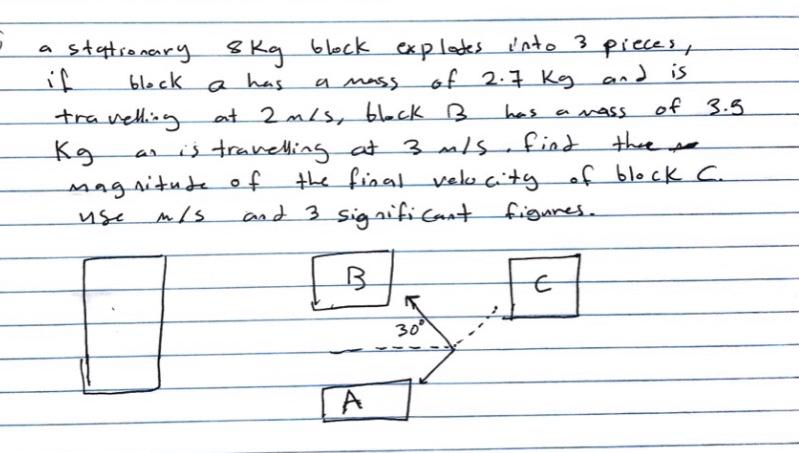 a stationary 8Kg block explodes into 3 pieces,
if block a has a mass of 2.7 Kg and is
travelling at 2 m/s, block B has a mass of 3.5
Kg an is travelling at 3 m/s. find the
magnitude of the final velocity of block C.
use m/s and 3 significant figures.
B
C
30°
A